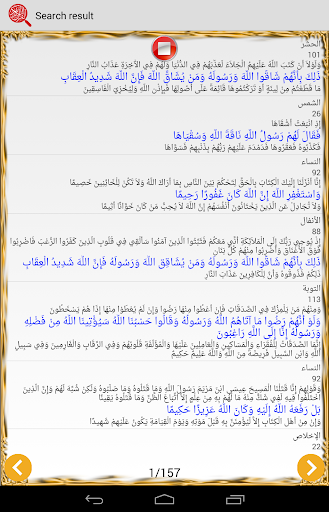 Search result
الحشر
101
وَلَوْلَا أَنْ كَتَبَ اللَّهُ عَلَيْهِمُ الْجَلَاءَ لَعَذَّبَهُمْ فِي الدُّنْيَا وَلَهُمْ فِي الْآخِرَةِ عَذَابُ النَّارِ
ذَلِكَ بِأَنَّهُمْ شَاقُّوا اللَّهَ وَرَسُولَهُ وَمَنْ يُشَاقِّ اللَّهَ فَإِنَّ اللَّهَ شَدِيدُ الْعِقَابِ
مَا قَطَعْتُمْ مِنْ لِينَةٍ أَوْ تَرَكْتُمُوهَا قَائِمَةً عَلَى أُصُولِهَا فَبِإِذْنِ اللَّهِ وَلِيُخْزِيَ الْفَاسِقِينَ
الشمس
26
إِذِ انْبَعَثَ أَشْقَاهَا
فَقَالَ لَهُمْ رَسُولُ اللَّهِ نَاقَةَ اللَّهِ وَسُقْيَاهَا
فَكَذَّبُوهُ فَعَقَرُوهَا فَدَمْدَمَ عَلَيْهِمْ رَبُّهُمْ بِذَنْبِهِمْ فَسَوَّاهَا
النساء
92
إِنَّا أَنْزَلْنَا إِلَيْكَ الْكِتَابَ بِالْحَقِّ لِتَحْكُمَ بَيْنَ النَّاسِ بِمَا أَرَاكَ اللَّهُ وَلَا تَكُنْ لِلْخَائِنِينَ خَصِيمًا
وَاسْتَغْفِرِ اللَّهَ إِنَّ اللَّهَ كَانَ غَفُورًا رَحِيمًا
وَلَا تُجَادِلْ عَنِ الَّذِينَ يَخْتَانُونَ أَنْفُسَهُمْ إِنَّ اللَّهَ لَا يُحِبُّ مَنْ كَانَ خَوَّانًا أَثِيمًا
الأنفال
88
إِذْ يُوحِي رَبُّكَ إِلَى الْمَلَائِكَةِ أَنِّي مَعَكُمْ فَثَبِّتُوا الَّذِينَ آمَنُوا سَأُلْقِي فِي قُلُوبِ الَّذِينَ كَفَرُوا الرُّعْبَ فَاضْرِبُوا
فَوْقَ الْأَعْنَاقِ وَاضْرِبُوا مِنْهُمْ كُلَّ بَنَانٍ
ذَلِكَ بِأَنَّهُمْ شَاقُّوا اللَّهَ وَرَسُولَهُ وَمَنْ يُشَاقِقِ اللَّهَ وَرَسُولَهُ فَإِنَّ اللَّهَ شَدِيدُ الْعِقَابِ
ذَلِكُمْ فَذُوقُوهُ وَأَنَّ لِلْكَافِرِينَ عَذَابَ النَّارِ
التوبة
113
وَمِنْهُمْ مَنْ يَلْمِزُكَ فِي الصَّدَقَاتِ فَإِنْ أُعْطُوا مِنْهَا رَضُوا وَإِنْ لَمْ يُعْطَوْا مِنْهَا إِذَا هُمْ يَسْخَطُونَ
وَلَوْ أَنَّهُمْ رَضُوا مَا آتَاهُمُ اللَّهُ وَرَسُولُهُ وَقَالُوا حَسْبُنَا اللَّهُ سَيُؤْتِينَا اللَّهُ مِنْ فَضْلِهِ
وَرَسُولُهُ إِنَّا إِلَى اللَّهِ رَاغِبُونَ
إِنَّمَا الصَّدَقَاتُ لِلْفُقَرَاءِ وَالْمَسَاكِينِ وَالْعَامِلِينَ عَلَيْهَا وَالْمُؤَلَّفَةِ قُلُوبُهُمْ وَفِي الرِّقَابِ وَالْغَارِمِينَ وَفِي سَبِيلِ
اللَّهِ وَابْنِ السَّبِيلِ فَرِيضَةً مِنَ اللَّهِ وَاللَّهُ عَلِيمٌ حَكِيمٌ
النساء
92
وَقَوْلِهِمْ إِنَّا قَتَلْنَا الْمَسِيحَ عِيسَى ابْنَ مَرْيَمَ رَسُولَ اللَّهِ وَمَا قَتَلُوهُ وَمَا صَلَبُوهُ وَلَكِنْ شُبِّهَ لَهُمْ وَإِنَّ الَّذِينَ
اخْتَلَفُوا فِيهِ لَفِي شَكٍّ مِنْهُ مَا لَهُمْ بِهِ مِنْ عِلْمٍ إِلَّا اتِّبَاعَ الظَّنِّ وَمَا قَتَلُوهُ يَقِينًا
بَلْ رَفَعَهُ اللَّهُ إِلَيْهِ وَكَانَ اللَّهُ عَزِيزًا حَكِيمًا
وَإِنْ مِنْ أَهْلِ الْكِتَابِ إِلَّا لَيُؤْمِنَنَّ بِهِ قَبْلَ مَوْتِهِ وَيَوْمَ الْقِيَامَةِ يَكُونُ عَلَيْهِمْ شَهِيدًا
الإخلاص
22
1/157